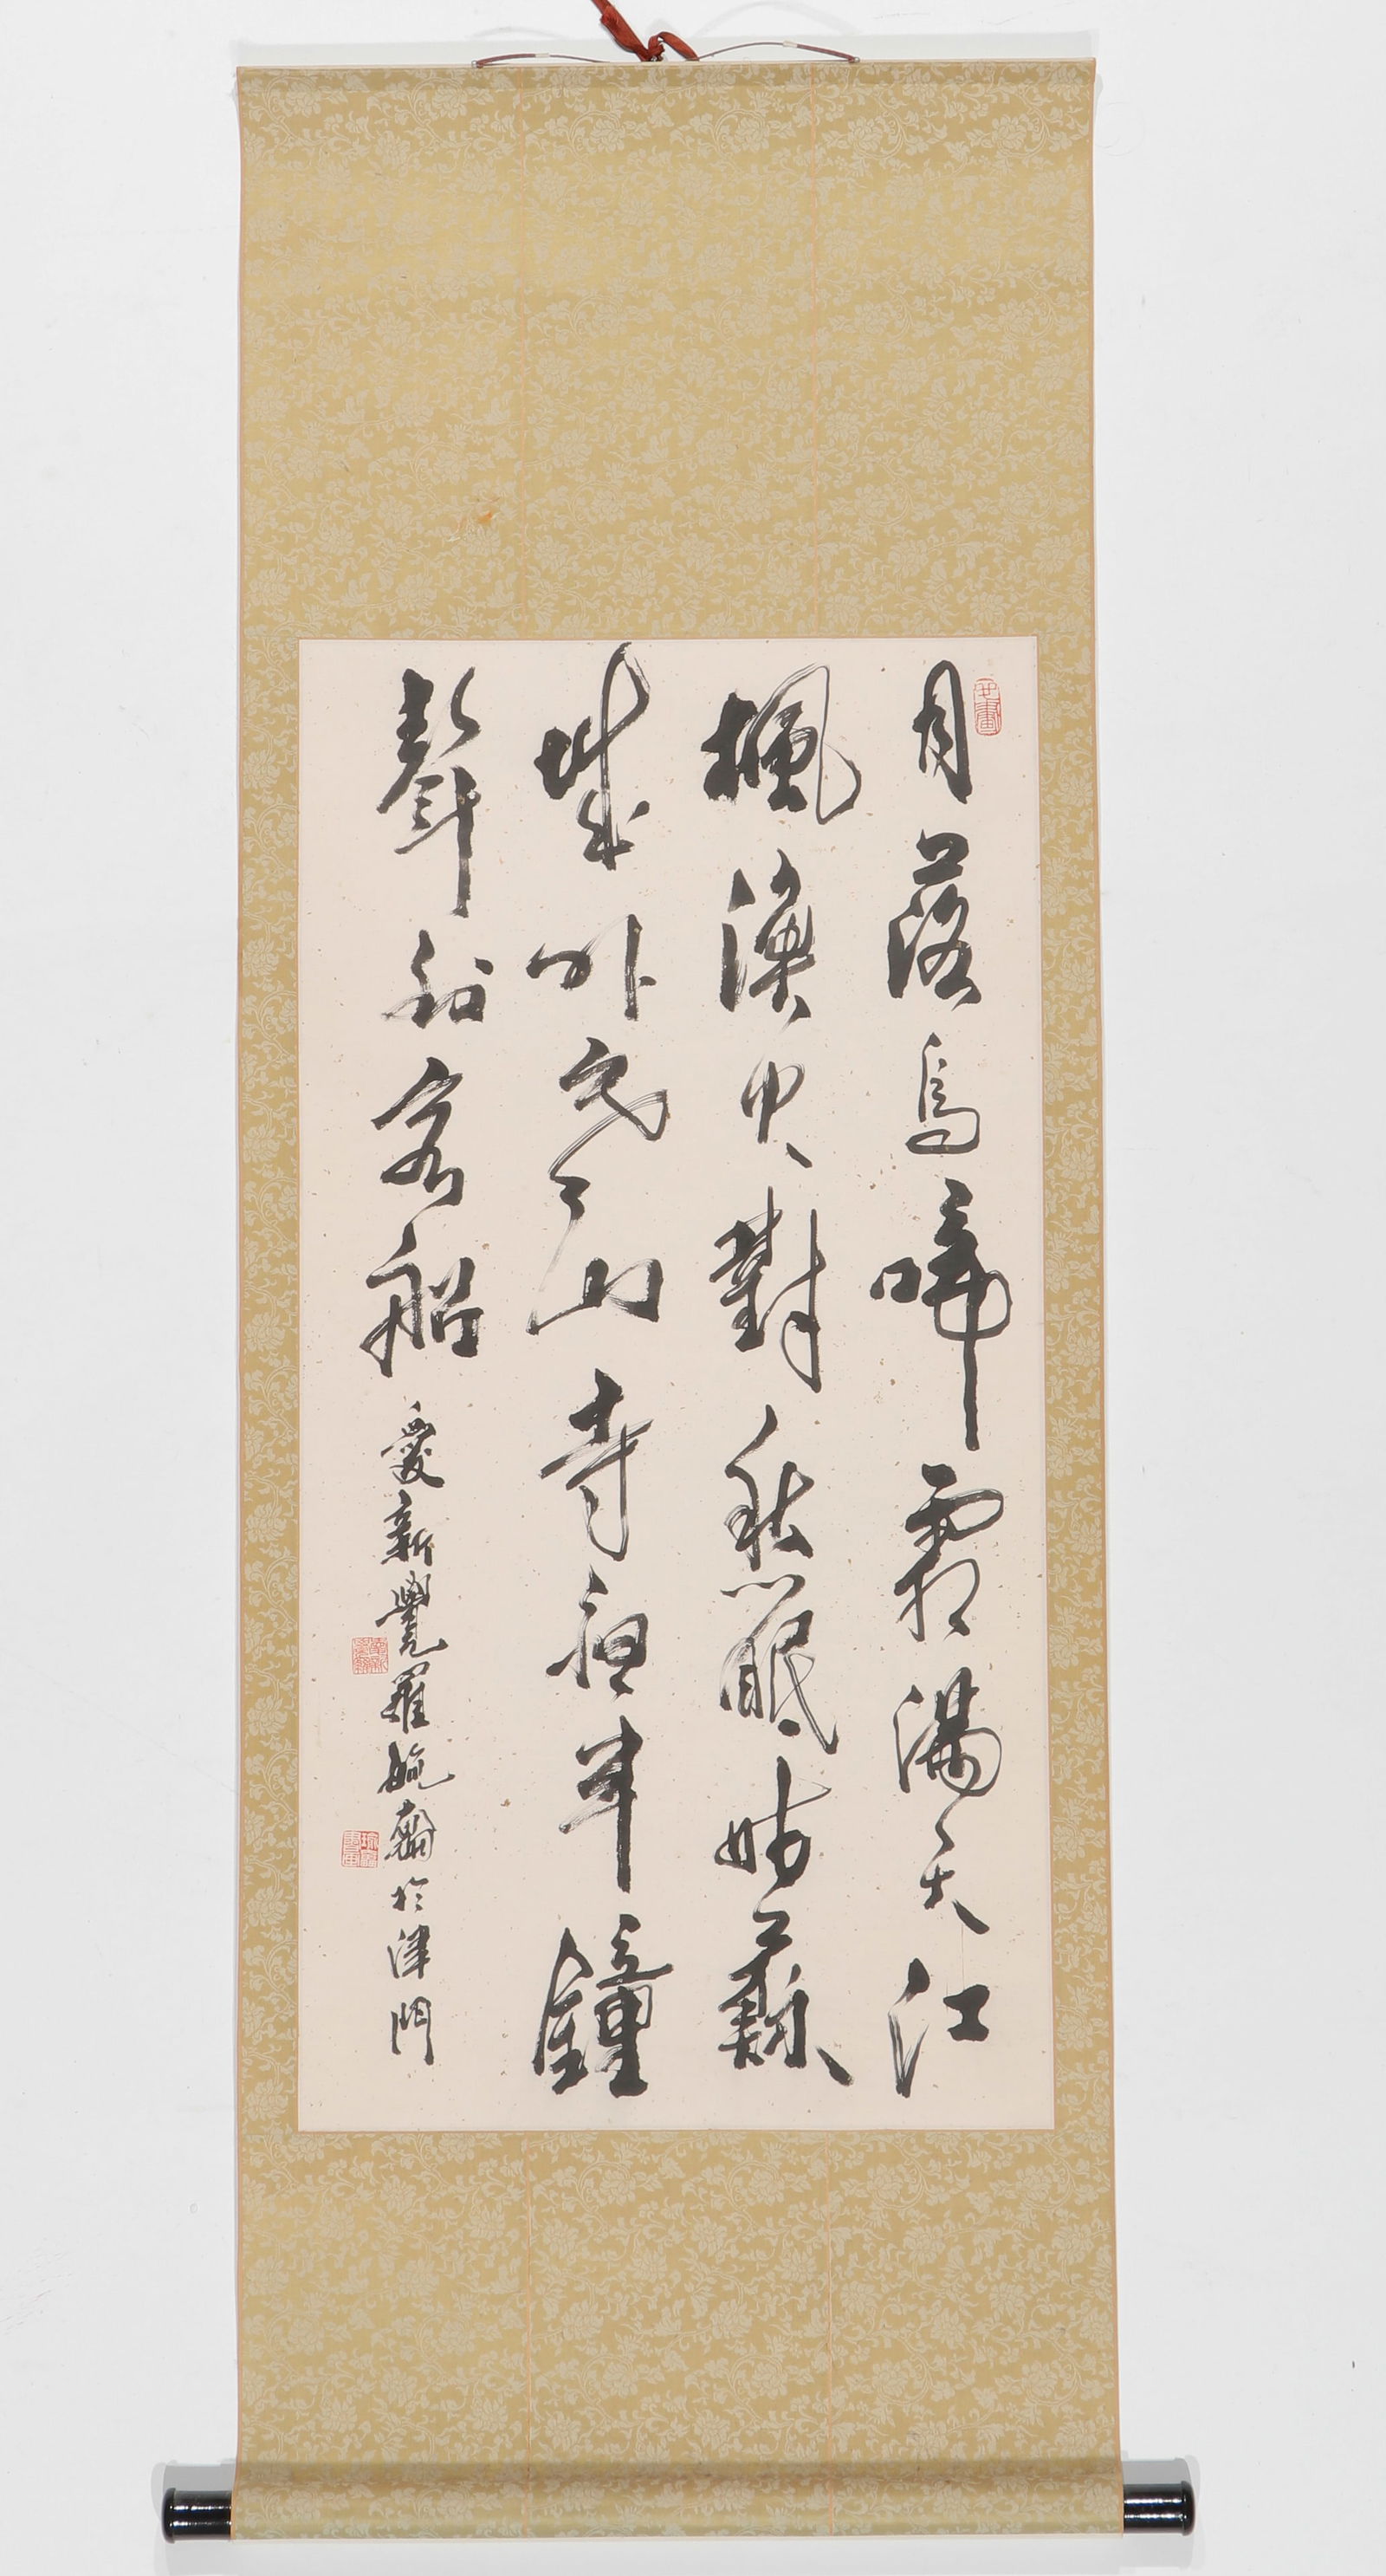 月落烏啼霜滿天江
楓漁火對愁眠姑蘇
城外寒山寺夜半鐘
聲到客船
愛新覺羅毓齋於津門